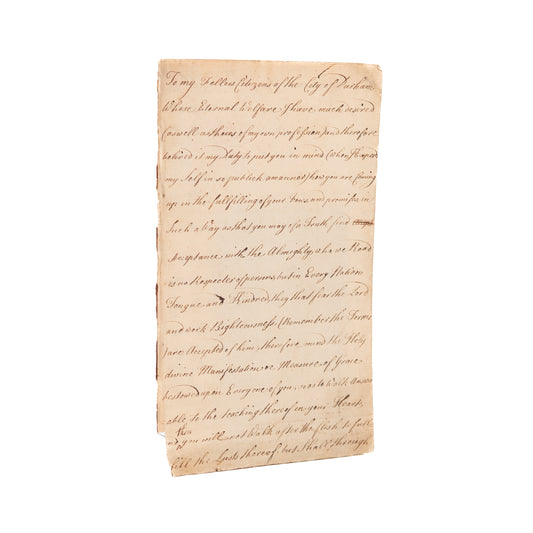 To my Fellow Citizens of the City of Durham
Whose Eternal Welfare I have much desired
(as well as theirs of my own profession) and therefore
believed it my Duty to put you in mind (when I
my Self in so publick a manner) how you are Coming
up in the fullfilling of your vows and promises in
Such a Way as that you may of a Truth find
Acceptance with the Almighty, who we Read
is no Respecter of persons, but in Every Nation
Tongue and Kindred they that fear the Lord
and work Righteousness (Remember the Terms
) are Accepted of him, therefore mind the Holy
divine Manifestation or Measure of Grace
bestowed upon Everyone of you, so as to Walk answer
able to the teaching thereof in your Heart,
and then you will not Walk after the flesh to full
fill the Lusts thereof but Shall through